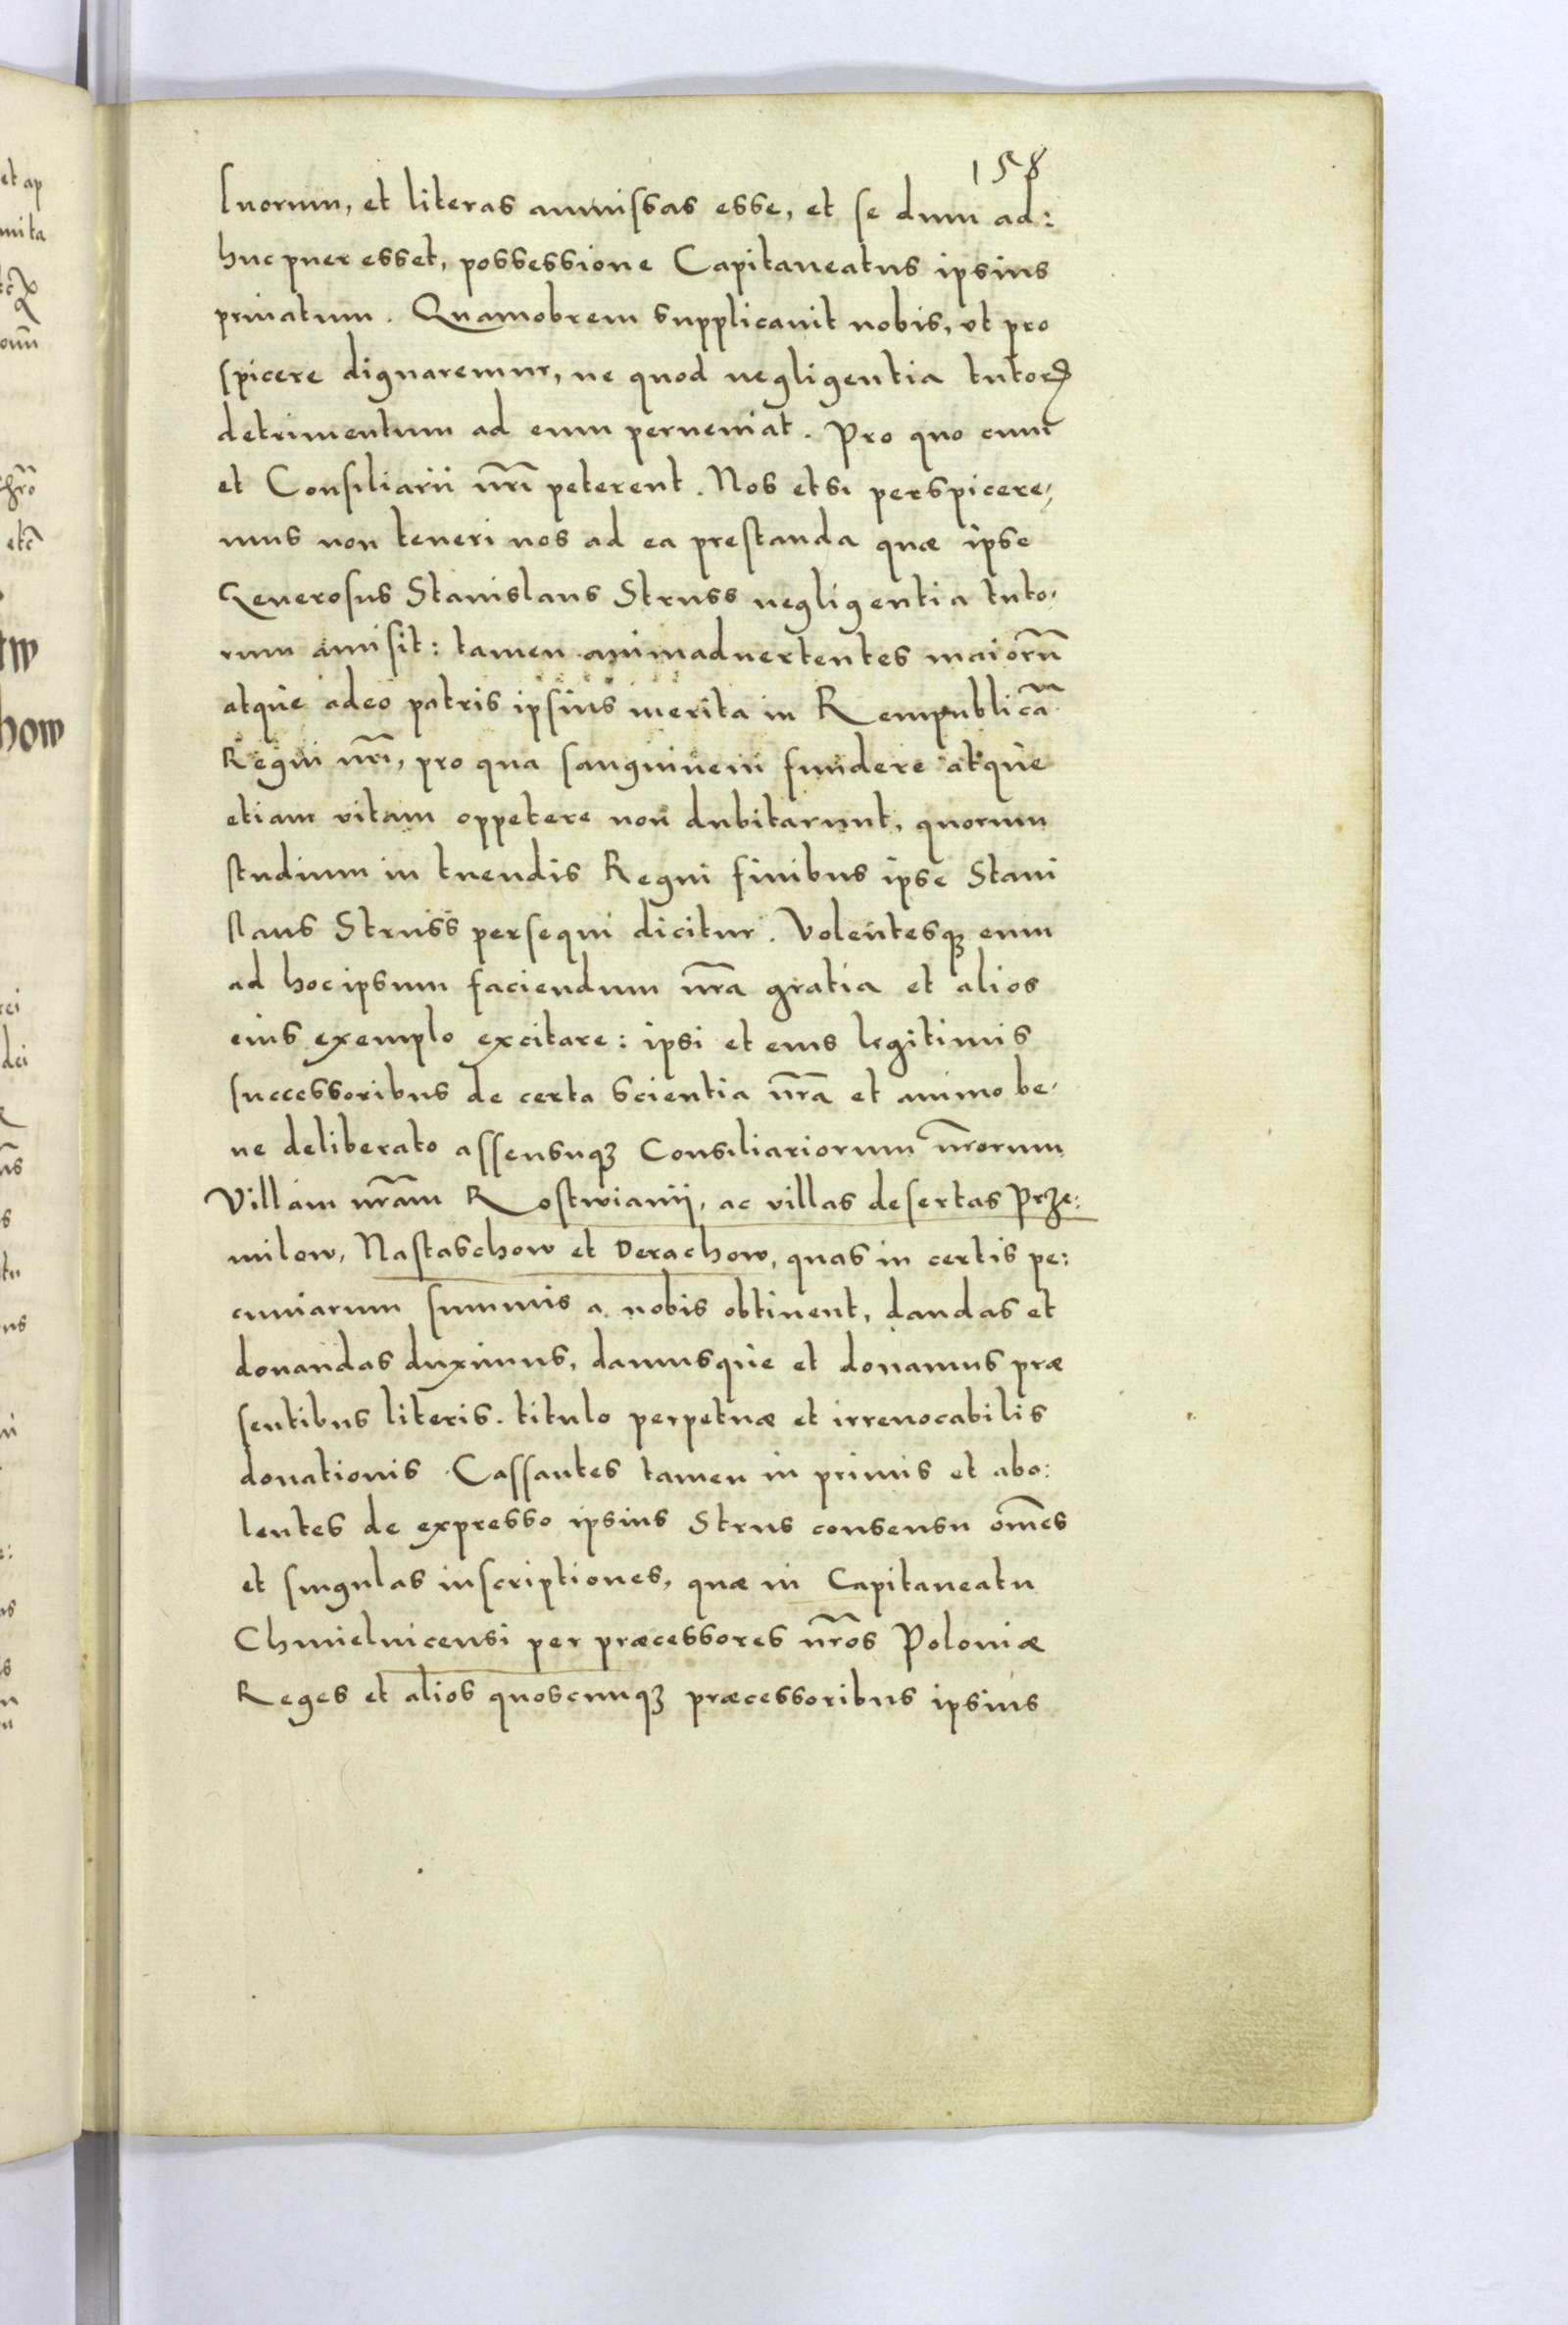 158
suorum, et literas ammissas esse, et se dum ad:
huc puer esset, possessione Capitaneatus ipsius
priuatum. Quamobrem supplicauit nobis, vt pro
spicere dignaremur, ne quod negligentia tutorꝝ
detrimentum ad eum perueniat. Pro quo cum
et Consiliarii nr̃i peterent. Nos etsi perspicere,
mus non teneri nos ad ea prestanda quæ ipse
Generosus Stanislaus Struss negligentia tuto,
rum amisit: tamen animaduertentes maiorũ
atque adeo patris ipsius merita in Rempublicã
Regni nr̃i, pro qua sanguinem fundere atque
etiam vitam oppetere non dubitarunt, quorum
studium in tuendis Regni finibus ipse Stani
slaus Struss persequi dicitur. Volentesqꝫ eum
ad hoc ipsum faciendum nr̃a gratia et alios
eius exemplo excitare: ipsi et eius legitimis
successoribus de certa scientia nr̃a et animo be,
ne deliberato assensuqꝫ Consiliariorum nr̃orum
Villam nr̃am Rostwianij, ac villas desertas Prze:
milow, Nastaschow et Derachow, quas in certis pe:
cuniarum summis a nobis obtinent, dandas et
donandas duximus, damusque et donamus præ
sentibus literis. titulo perpetuæ et irreuocabilis
donationis. Cassantes tamen in primis et abo:
lentes de expresso ipsius Strus consensu om̃es
et singulas inscriptiones, quæ in Capitaneatu
Chmielnicensi per præcessores nr̃os Poloniæ
Reges et alios quoscunqꝫ præcessoribus ipsius